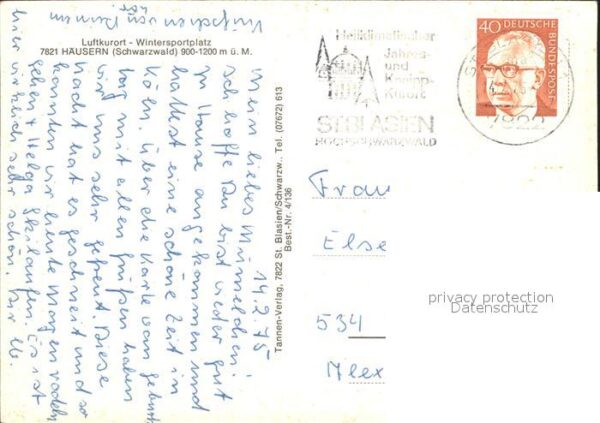 Luftkurort - Wintersportplatz
7821 HÄUSERN (Schwarzwald) 900-1200 m ü. M.
14.2.75
Mein liebes Mümelchen!
Ich hoffe Du bist wieder gut
zu Hause angekommen und
hattest eine schöne Zeit in
Köln. Über die Karte vom Geburts
tag mit allen Grüßen haben
wir uns sehr gefreut. Diese
Nacht hat es geschneit und so
konnten wir heute Morgen rodeln
gehen + Helga Skilaufen. Es ist
hier wirklich sehr schön.
Tannen-Verlag, 7822 St. Blasien/Schwarzw., Tel. (07672) 613
Best.-Nr. 4/136
Heilklimatischer
Jahres-
und
Kneipp-
Kurort
ST. BLASIEN
HOCHSCHWARZWALD
7822
40
DEUTSCHE
BUNDESPOST
Frau
Else
534
Alex
privacy protection
Datenschutz